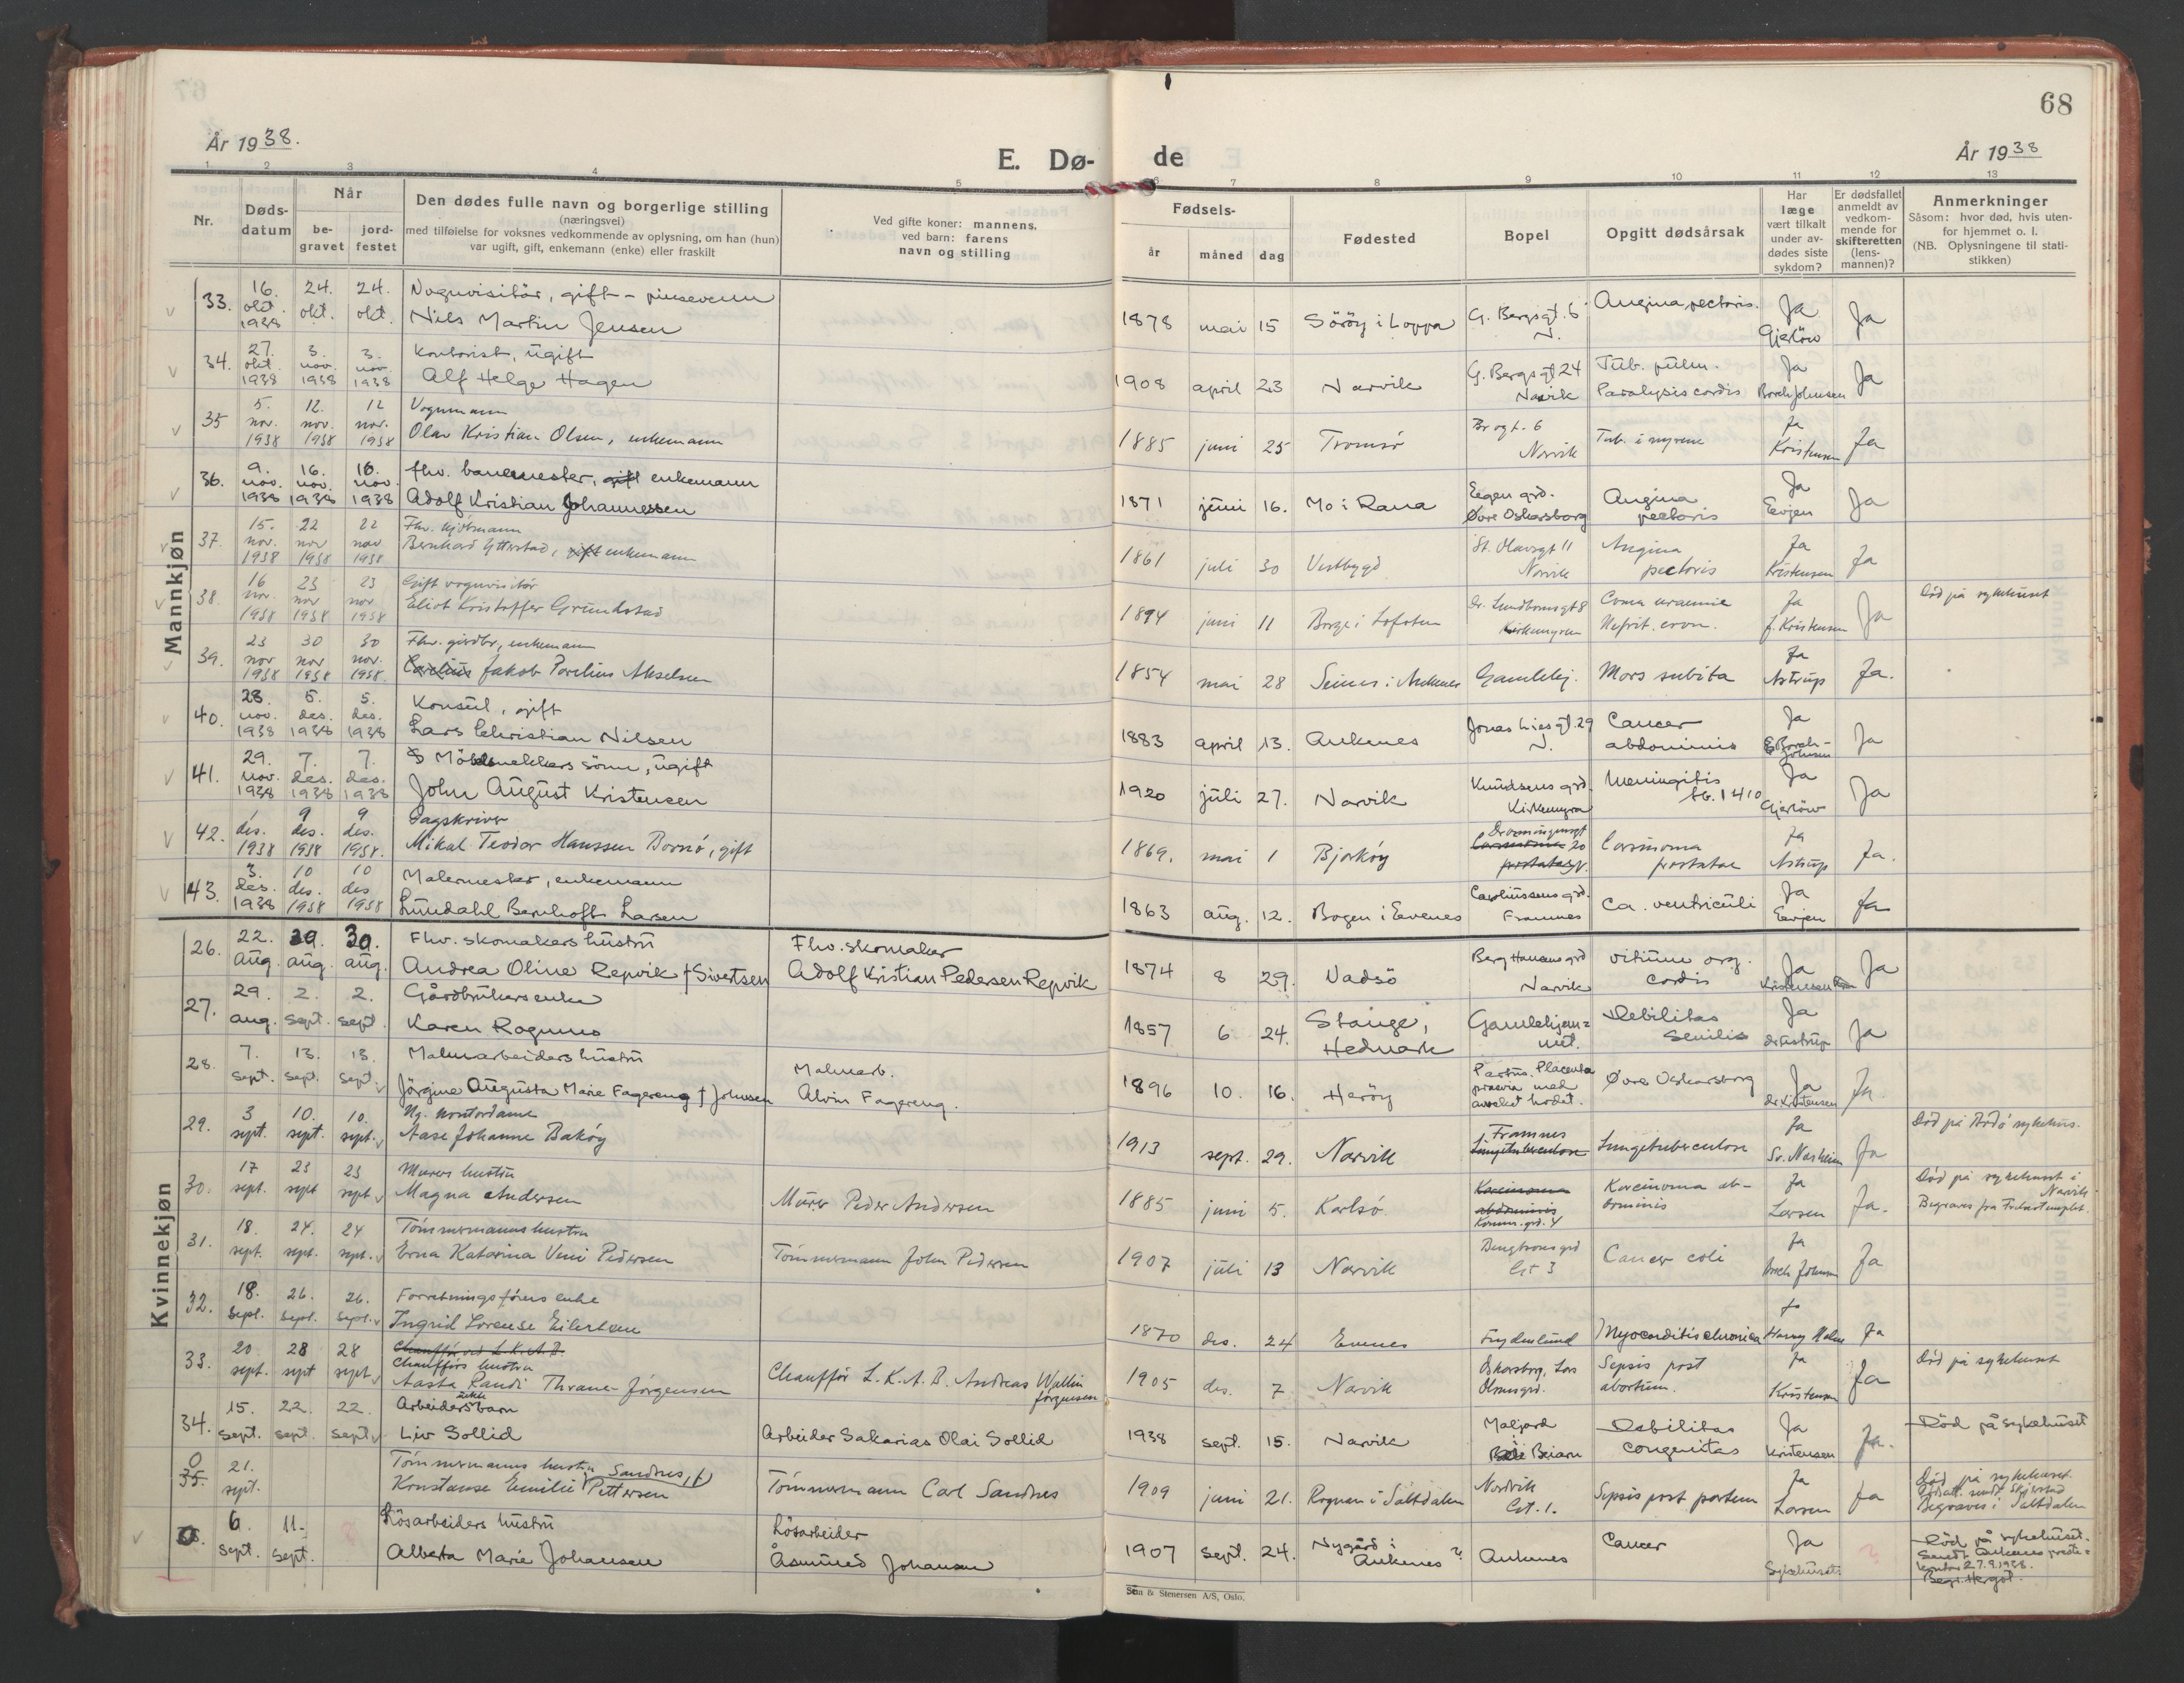 68
År 1938.
E. Dø-de
År 1938
1 2 3 4 5 6 7 8 9 10 11 12 13
Nr.
Døds-datum
Når
be-gravet
jord-festet
Den dødes fulle navn og borgerlige stilling
(næringsvei)
med tilføielse for voksnes vedkommende av oplysning, om han (hun)
var ugift, gift, enkemann (enke) eller fraskilt
Ved gifte koner: mannens,
ved barn: farens
navn og stilling
Fødsels-
år måned dag
Fødested
Bopel
Opgitt dødsårsak
Har læge vært tilkalt under av-dødes siste sykdom?
Er dødsfallet anmeldt av vedkom-mende for skifteretten (lens-mannen)?
Anmerkninger
Såsom: hvor død, hvis uten-
for hjemmet o. l.
(NB. Oplysningene til stati-
stikken)
Mannkjøn
33. 16. okt. 1938 24. okt. 24. okt. Vognvisitør, gift - pinsevenn
Nils Martin Jensen 1878 mai 15 Söröy i Loppa G. Bergsgt. 6 N. Angina pectoris. Ja Gjerlöw Ja
34. 27. okt. 1938 3. nov. 1938 3. nov 1938 Kontorist, ugift
Alf Helge Hagen 1908 april 23 Narvik G. Bergsgt 24 Narvik Tub. pulm. Paralysis cordis Ja Borch Johnsen Ja
35 5. nov. 1938 12. nov. 1938 12 nov. 1938 Vognmann
Olav Kristian Olsen, enkemann 1885 juni 25 Tromsø Brogt. 6 Narvik Tub. i nyrene Ja Kristensen Ja
36. 9. nov. 1938 16. nov. 1938 16. nov. 1938 fhv. banemester, gift enkemann
Adolf Kristian Johannessen 1871 juni 16. Mo i Rana Eegen grd. Øvre Oskarsborg Angina pectoris Ja Eevjen Ja
37. 15. nov. 1938 22 nov 1938 22 nov 1938 Fhv.
Bernhard Ytterstad, gift enkemann 1861 juli 30 Vestbygd St. Olavsgt 11 Narvik Angina pectoris Ja Kristensen Ja
38. 16 nov. 1938 23 nov 1938 23 nov 1938 Gift vognvisitör
Eliot Kristoffer Grundstad 1894 juni 11 Borge i Lofoten Dr. Lundbomsgt 8 Kirkemyren Coma uraemie Nefrit. cron. Ja f. Kristensen Ja Död på sykehuset
39. 23 nov 1938 30 nov 1938 30 nov. 1938 Fhv. grdbr, enkemann
Jakob Parelius Akselsen 1854 mai 28 Seines i Ankenes Gamlehj. Mors subita Ja Astrup Ja.
40. 28. nov. 1938 5. des. 1938 5. des. 1938 Konsul, gift
Lars Christian Nilsen 1883 april 13. Ankenes Jonas Liesgt. 29 N. Cancer abdominis Ja Borch-Johnsen Ja
41. 29. nov. 1938 7. des. 1938 7. des. 1938 Möbelsnekkers sönn, ugift
John August Kristensen 1920 juli 27. Narvik Knudsens grd. Kirkemyra Meningitis Ja Gjerlöw Ja
42. 1 des. 1938 9 des. 1938 9 des. 1938. Dagskriver
Mikal Teodor Hanssen Bornö, gift 1869. mai 1 Bjarköy Dronningensgt 20 Carsinoma prostatae Ja Astrup Ja.
43. 3. des. 1938 10 des. 1938 10 des 1938 Malermester, enkemann
Lundahl Bernhoft Larsen 1863 aug. 12. Bogen i Evenes Carolinssens grd. Framnes Ca. ventriculi Ja Eevjen Ja
Kvinnekjøn
26. 22. aug. 30. aug. 30. aug. Fhv. skomakers hustru
Andrea Oline Repvik f Sivertsen
Fhv. skomaker
Adolf Kristian Pedersen Repvik 1874 8 29. Vadsö Berg Hansens grd Narvik vitium org. cordis Ja Kristensen Ja
27. 29. aug. 2. sept. 2. sept. Gårdbrukers enke
Karen Rognmo 1857 6 24. Stange, Hedmark Gamlehjem=met. Debilitas senilis Ja dr Astrup Ja
28. 7. sept. 13. sept. 13. sept. Malmarbeiders hustru
Jörgine Augusta Marie Fagereng f Johnsen
Malmarb.
Alvin Fagereng. 1896 10. 16. Heröy Partus. Placenta praevia med avreket hodet. Øvre Oskarsborg Ja dr Kristensen Ja.
29. 3 sept. 10. sept. 10. sept. Ug. kontordame
Aase Johanne Baköy 1913 sept. 29. Narvik Framnes Lungetuberculose Lungetuberculose Ja Ja Död på Bodö sykehus.
30. 17 sept. 23 sept 23 sept Murers hustru
Magna Andersen Murer Peder Andersen 1885 juni 5. Karlsö Karcinoma abdominis Komm. grd. 4 Karcinoma ab-dominis Ja Larsen Ja. Död på sykehuset i Narvik.
Begraves fra Frelsestemplet.
31. 18. sept. 24. sept. 24 sept. Tömmermanns hustru
Erna Katarina Veni Pedersen Tömmermann John Pedersen 1907 juli 13 Narvik Bengtsons grd Crt 3 Cancer coli Ja Borch Johnsen Ja
32. 18. sept. 26. sept. 26. sept. Forretningsförers enke
Ingrid Lorense Eilertsen 1870 des. 24 Evenes Frydenlund Myocarditis chronica Ja Harry Holm Ja
33. 20 sept. 28 sept 28 sept Chaufför ved L.K.A.B.
Chaufförs hustru
Aasta Randi Thrane-Jörgensen Chaufför L.K.A.B. Andreas Wallin Jörgensen 1905 des. 7 Narvik Oskarsborg, Lars Olsens grd. Sepsis post abortum. Ja Kristensen Ja Död på sykehuset
34. 15. sept. 22. sept. 22. sept. Arbeiders barn
Liv Sollid Arbeider Sakarias Olai Sollid 1938 sept. 15. Narvik Maljord i Beiarn Debilitas congenitas Ja Kristensen Ja. Död på sykehuset
0 35. 21. sept. Tömmermanns hustru
Konstanse Emilie Pettersen Sandnes Tömmermann Carl Sandnes 1909 juni 21. Rognan i Saltdalen Narvik Crt. 1. Sepsis post partum Ja Larsen Ja Död på sykehuset.
Dödsatt. sendt Skjerstad
Begraves i Saltdalen
6. sept. 11. sept. ? Lösarbeiders hustru
Alberta Marie Johansen
Lösarbeider
Åsmund Johansen 1907 sept. 24. Nygård i Ankenes? Ankenes Cancer Ja Sykehuset. ? Död på sykehuset.
Sendt Ankenes preste=
kontor 27.9.1938.
Stein & Stenersen A/S, Oslo.